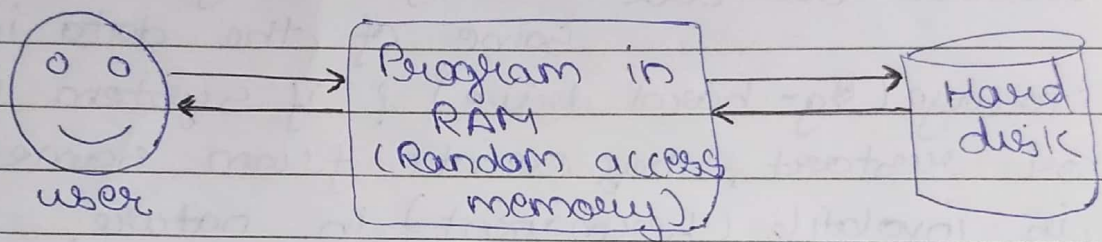 Program in
RAM
(Random access
memory)
Hard
disk
user